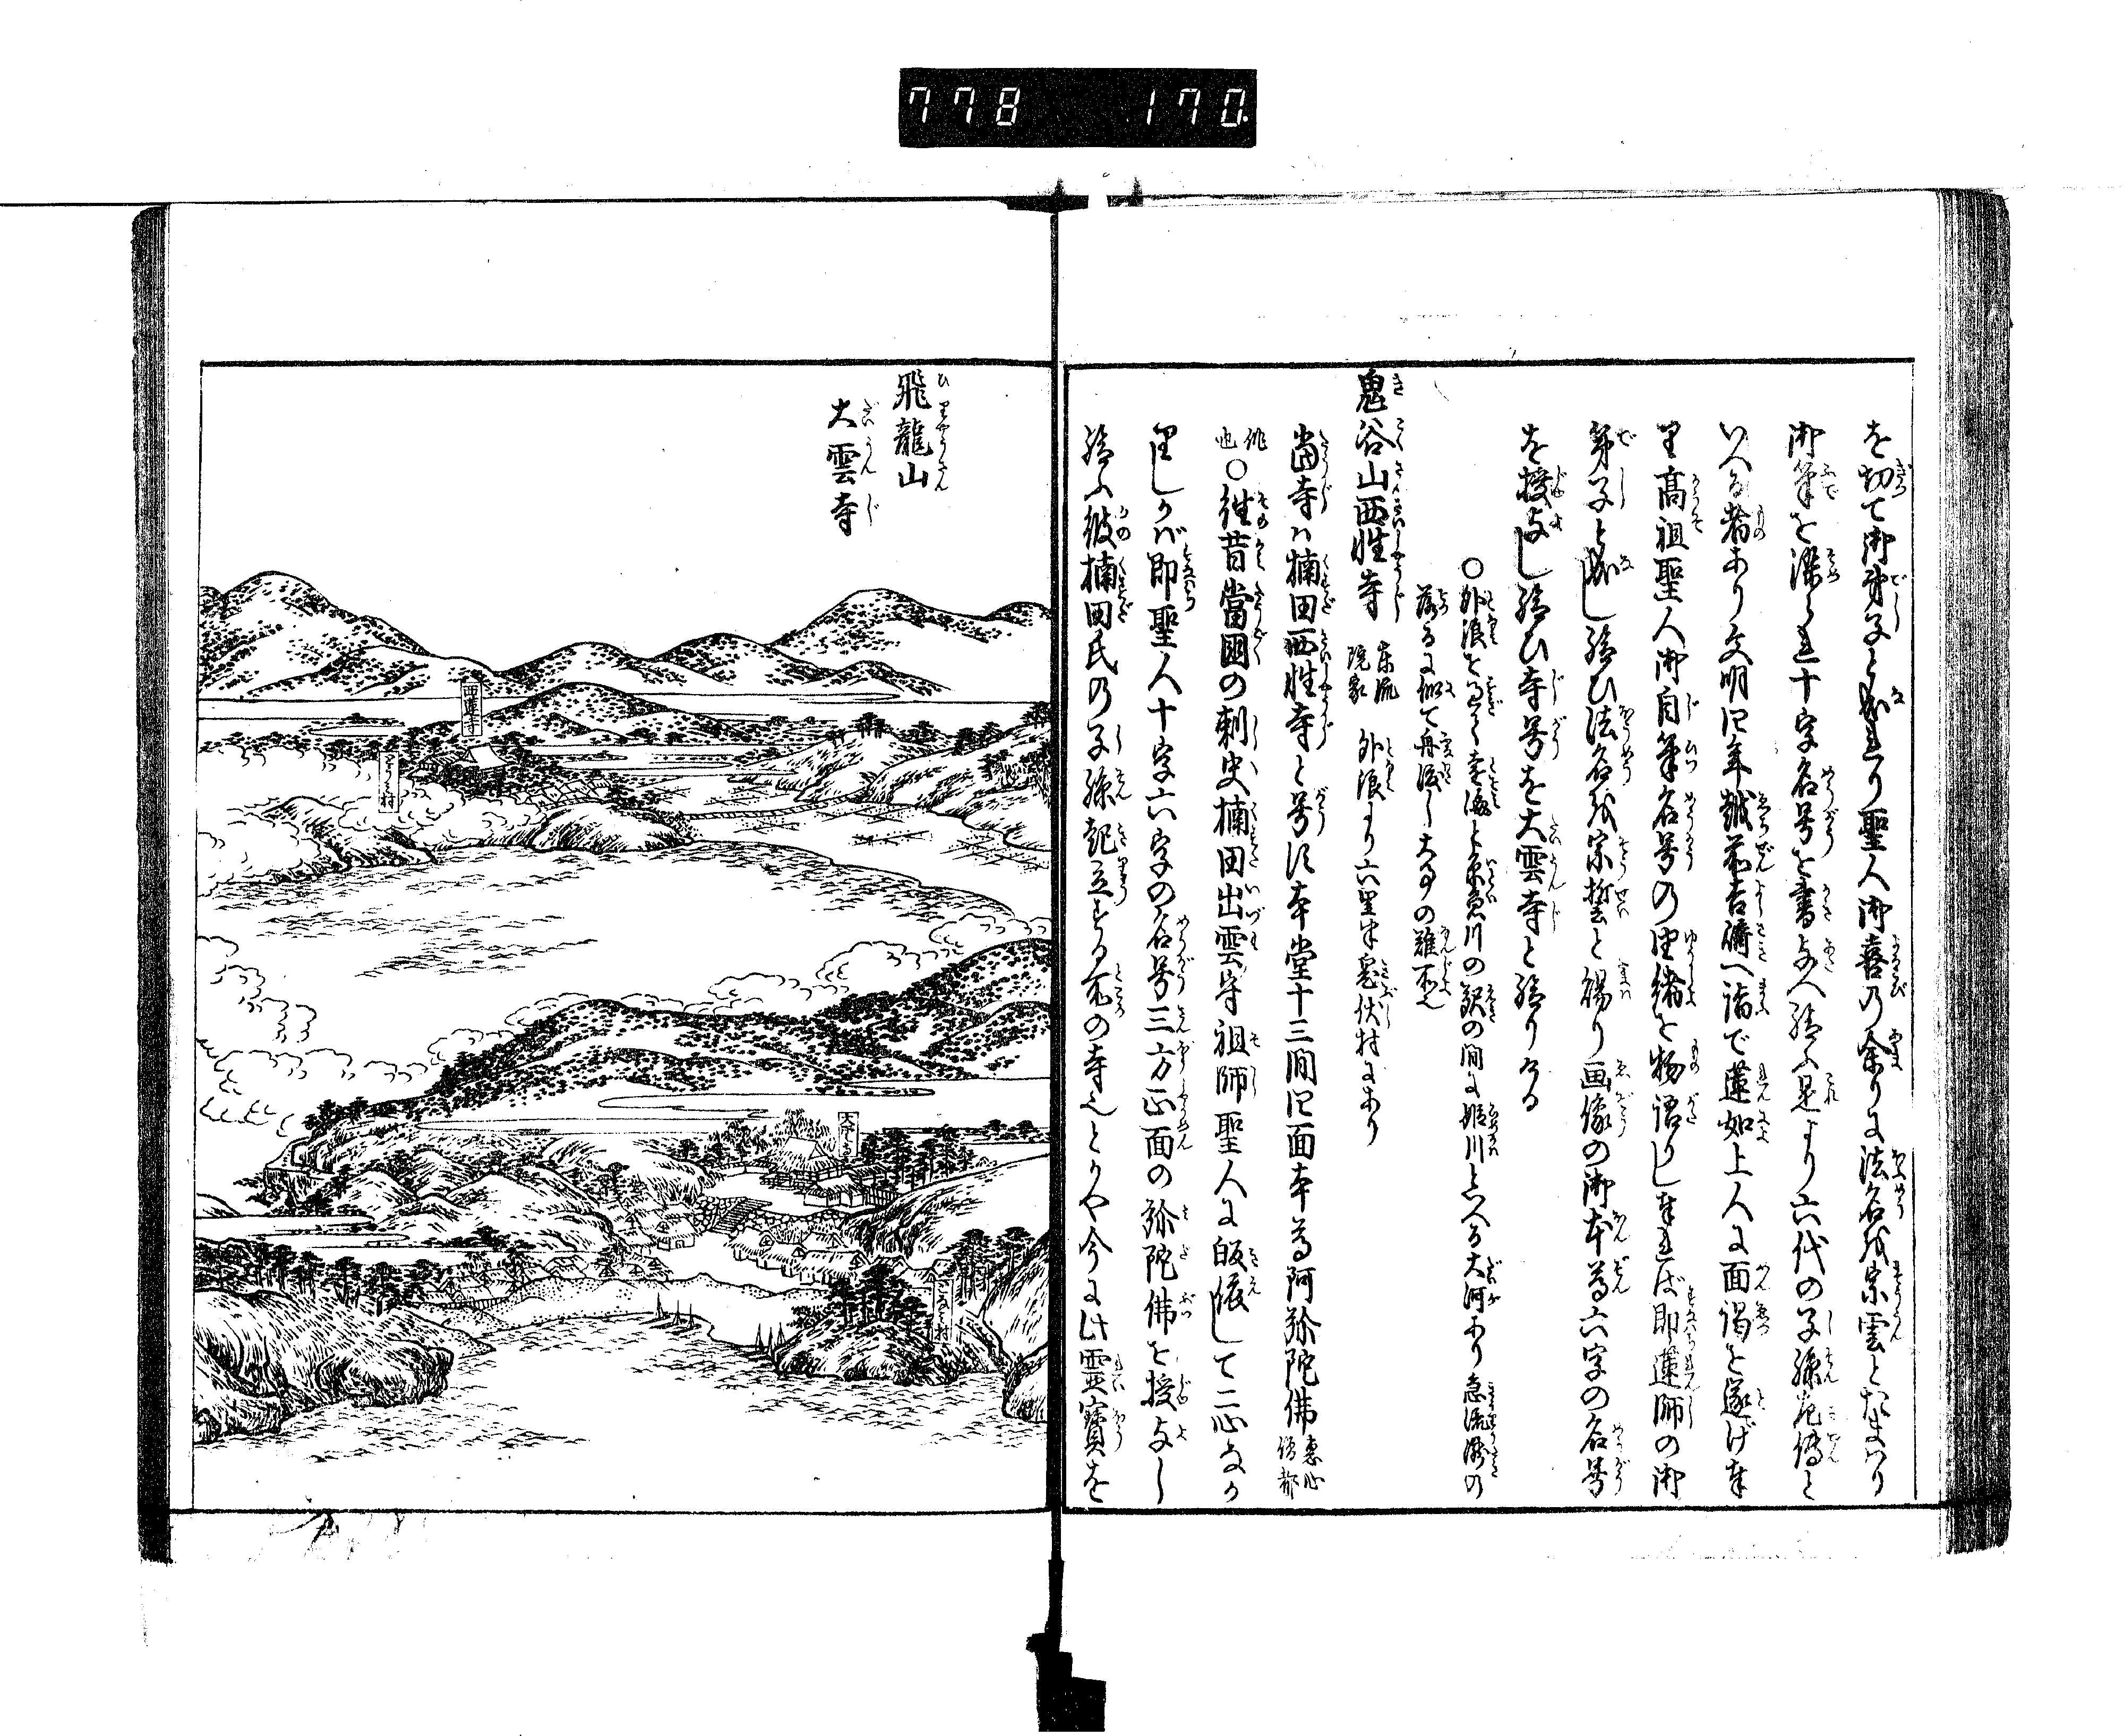 778 170
を切て御弟子と成れり聖人御喜の余りに法名を宗雲とたまはり
御筆を染られ十字名号を書あたへ給ふ是より六代の子孫宛傳と
いへる者あり文明四年越前吉崎へ詣で蓮如上人に面謁を遂げ奉
り高祖聖人御自筆名号の由緒を物語りし奉れば即蓮師の御
弟子と成し給ひ法名を宗誓と賜り画像の御本尊六字の名号
を授与し給ひ寺号を大雲寺と給りける
○外浪を過て青海と糸魚川の駅の間に姫川といへる大河あり急流瀧の
落るに似て舟渡し大事の難所也
鬼谷山西性寺 東派院家 外浪より六里半鬼伏村にあり
當寺は楠田西性寺と号す本堂十三間四面本尊阿弥陀佛 恵心僧都
作也○往昔當國の刺史楠田出雲守祖師聖人に皈依して二心なか
りしかば即聖人十字六字の名号三方正面の弥陀佛を授与し
給ふ彼楠田氏の子孫起立する所の寺也とかや今に此霊寶を
飛龍山
大雲寺
西蓮寺
大雲寺